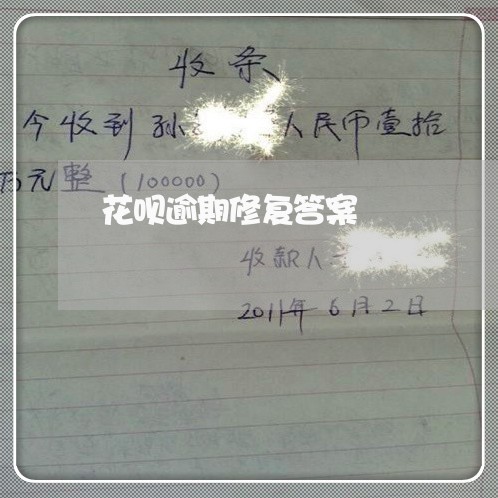 收条
今收到孙 人民币壹拾
万元整（100000）
花呗逾期修复答案
收款人
2011年6月2日